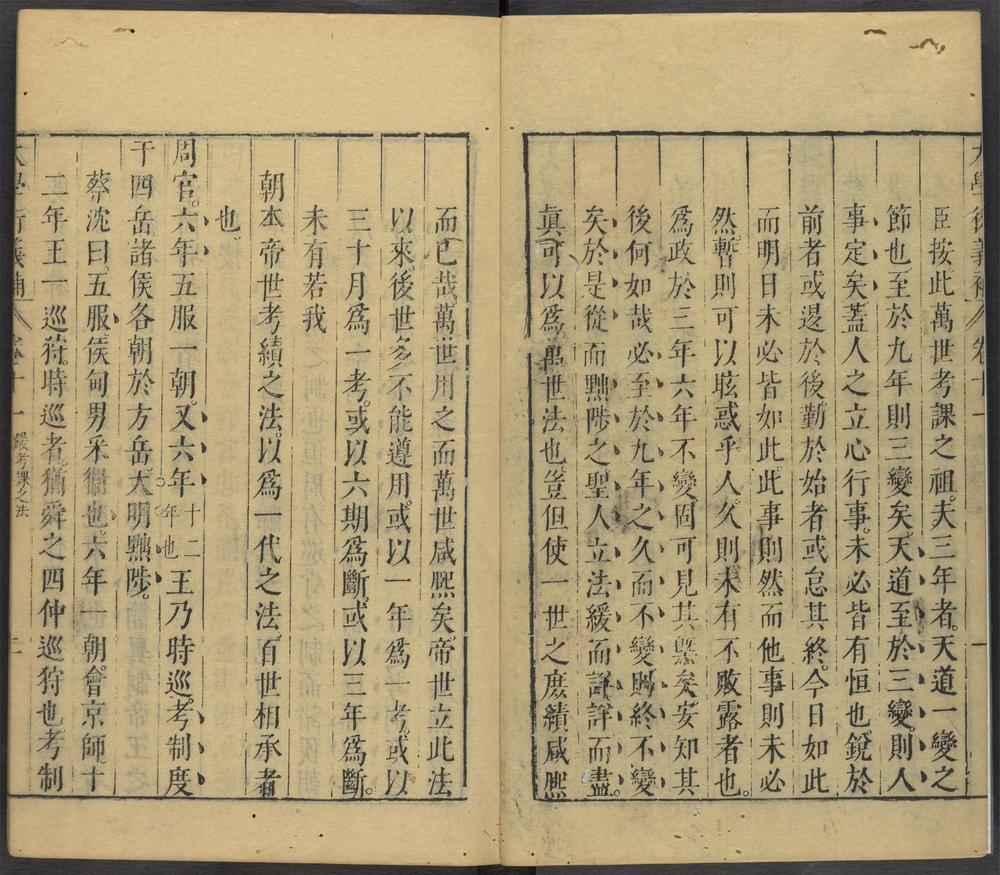 大學衍義補 卷十一 一
臣按此萬世考課之祖夫三年者天道一變之
節也至於九年則三變矣天道至於三變則人
事定矣蓋人之立心行事未必皆有恒也銳於
前者或退於後勤於始者或怠其終今日如此
而明日未必皆如此此事則然而他事則未必
然暫則可以眩惑乎人久則未有不敗露者也
爲政於三年六年不變固可見其槩矣安知其
後何如哉必至於九年之久而不變則終不變
矣於是從而黜陟之聖人立法緩而詳詳而盡
眞可以爲萬世法也豈但使一世之庶績咸熈
而已哉萬世用之而萬世咸熈矣帝世立此法
以來後世多不能遵用或以一年爲一考或以
三十月爲一考或以六期爲斷或以三年爲斷
未有若我
朝本帝世考績之法以爲一代之法百世相承者
也
周官六年五服一朝又六年十二年也王乃時巡考制度
于四岳諸侯各朝於方岳大明黜陟
蔡沈曰五服侯甸男采衞也六年一朝會京師十
二年王一巡狩時巡者猶舜之四仲巡狩也考制
大學衍義補 卷十一 嚴考課之法 二